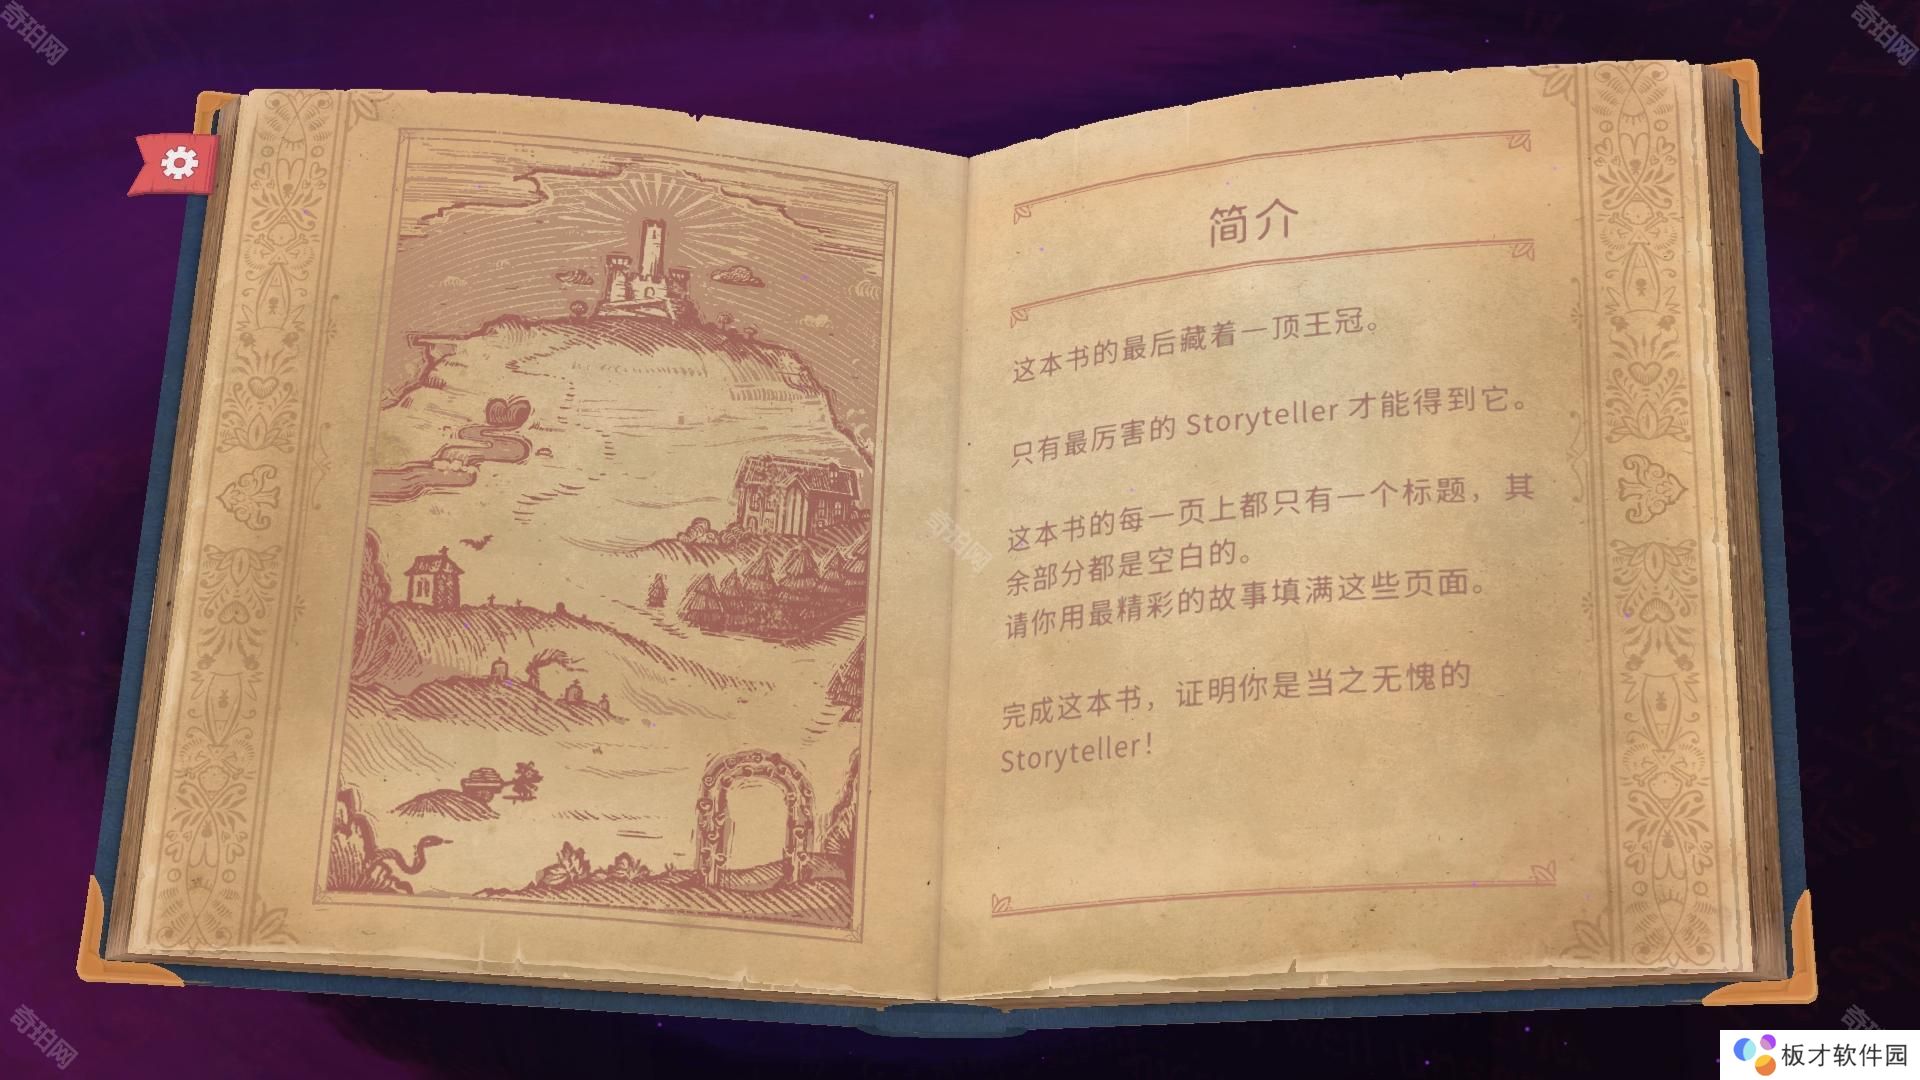 奇珀网
奇珀网
简介
这本书的最后藏着一顶王冠。
只有最厉害的 Storyteller 才能得到它。
这本书的每一页上都只有一个标题，其
余部分都是空白的。
请你用最精彩的故事填满这些页面。
奇珀网
完成这本书，证明你是当之无愧的
Storyteller！
奇珀网
奇珀网
板才软件园